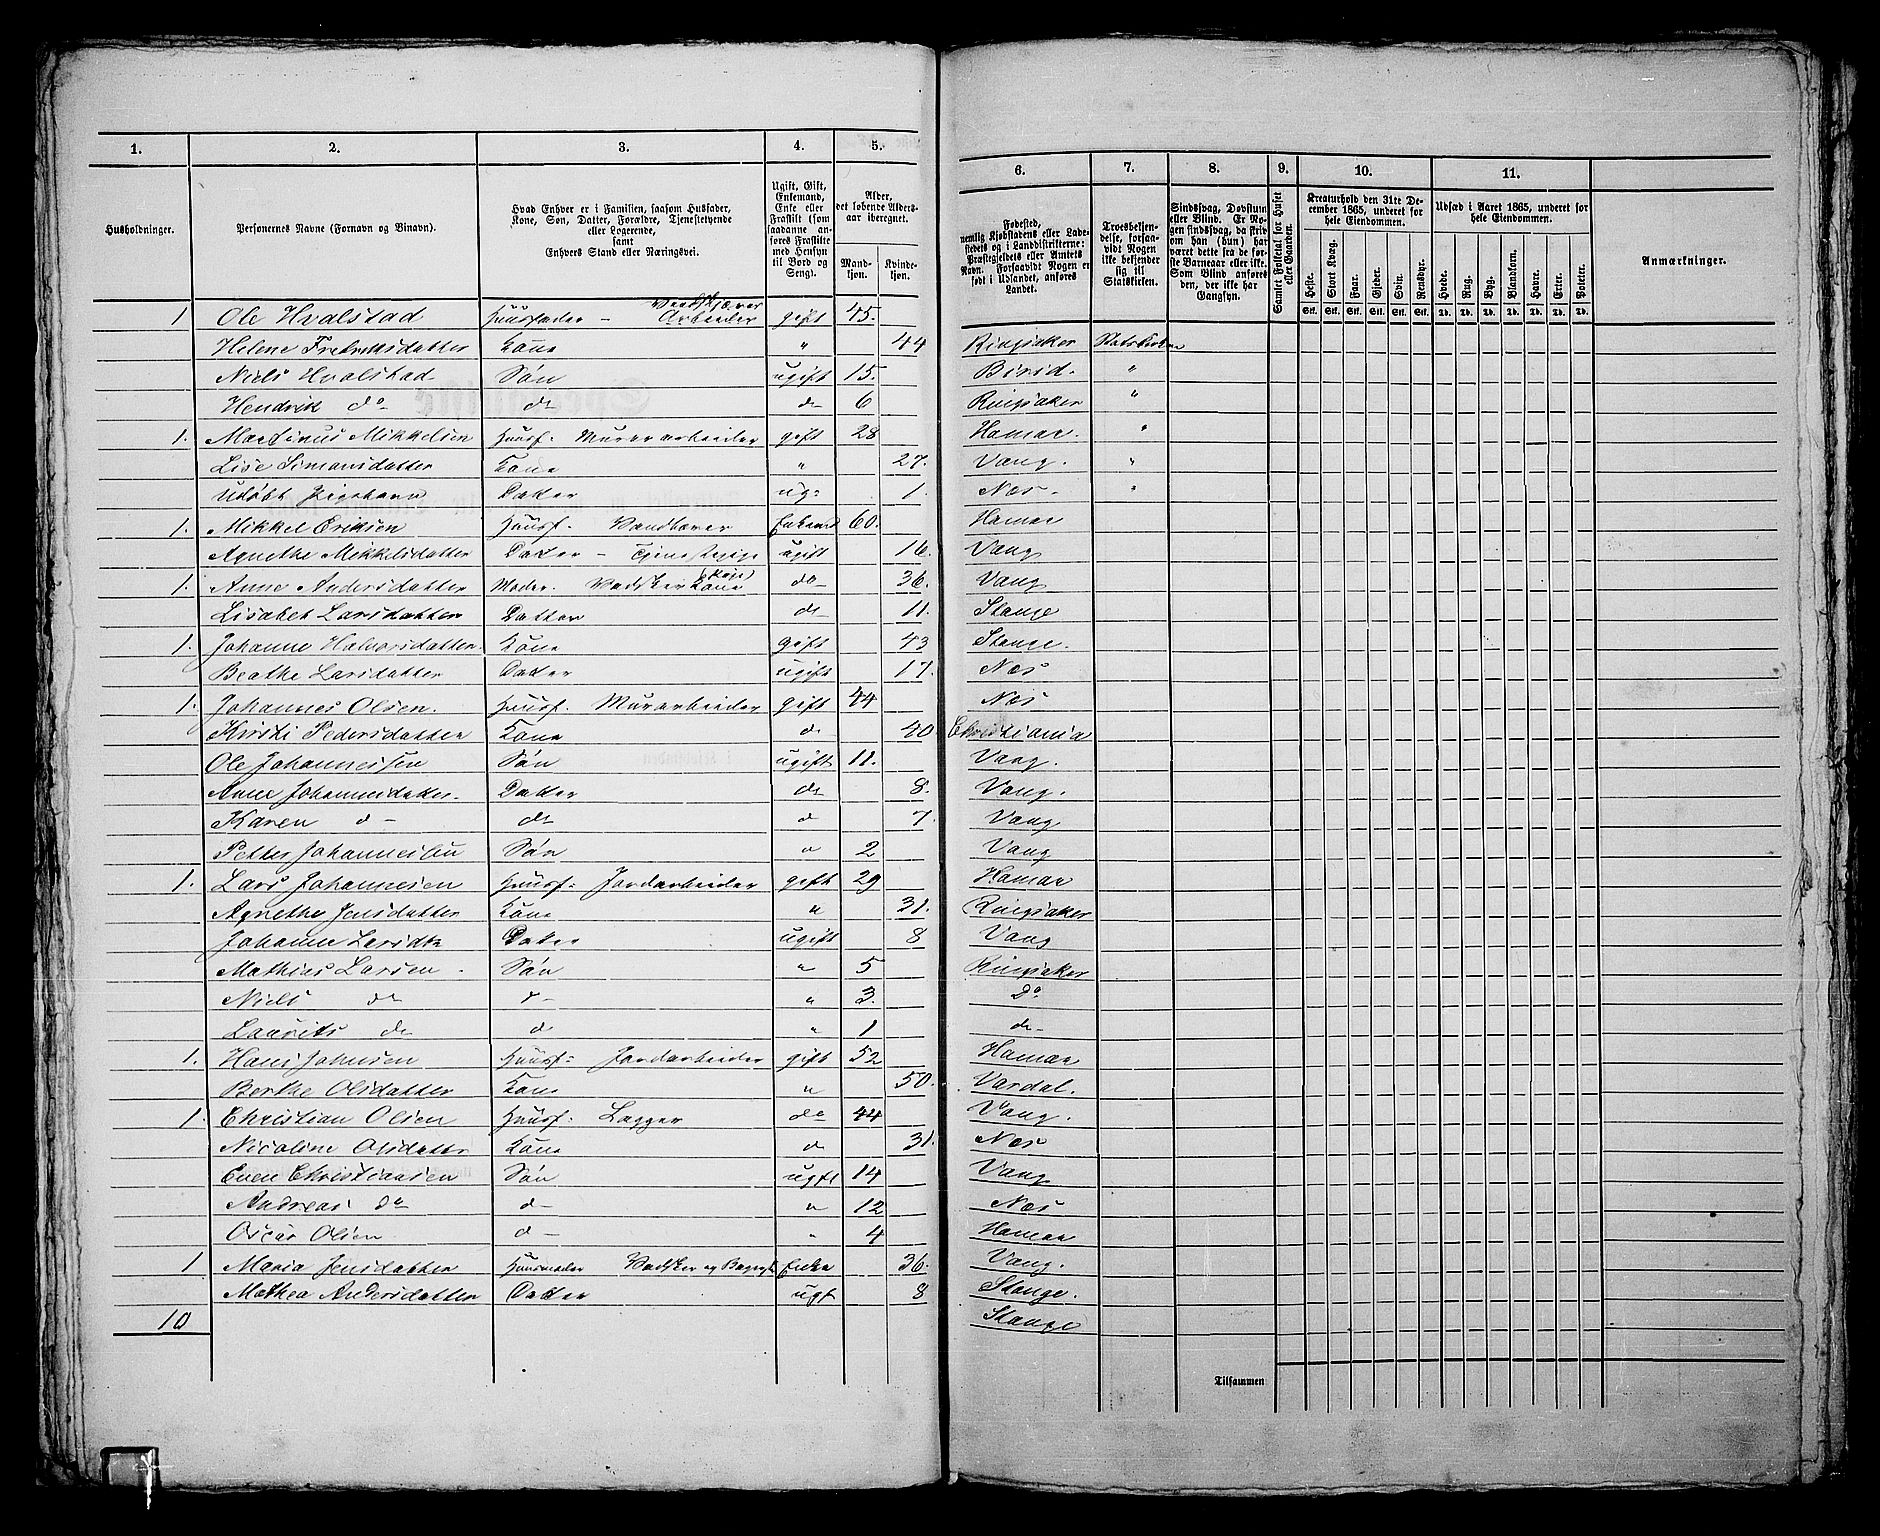 1. 2. 3. 4. 5.
Husholdninger.
Personernes Navne (Fornavn og Binavn).
Hvad Enhver er i Familien, saasom Husfader,
Kone, Søn, Datter, Forældre, Tjenestetyende
eller Logerende,
samt
Enhvers Stand eller Næringsvei.
Ugift, Gift,
Enkemand,
Enke eller
Fraskilt (som
saadanne an-
føres Fraskilte
med Hensyn
til Bord og
Seng).
Alder,
det løbende Alders-
aar iberegnet.
Mand-
kjøn.
Kvinde-
kjøn.
1 Ole Hvalstad Huusfader – Arbeider gift 45.
Helene Fredriksdatter Kone " 44
Niels Hvalstad Søn ugift 15.
Hendrik do do do 6
1. Martinus Mikkelsen Huusf. Murerarbeider gift 28
Lise Simensdatter Kone " 27.
Udøbt Pigebarn Datter ug: 1.
1. Mikkel Eriksen Huusf. Vandbærer Enkemd 60.
Agnethe Mikkelsdatter Datter – ugift 16.
1. Anne Andersdatter Moder. Vadsker Kone do 36.
Lisabet Larsdatter Datter do 11.
1. Johanne Halvorsdatter Kone gift 43
Beathe Larsdatter Datter ugift 17.
1. Johannes Olsen. Huusf. Murarbeider gift 44
Kirsti Pedersdatter Kone do 40
Ole Johannessen Søn ugift 11.
Anne Johannesdatter. Datter do 8.
Karen do do do 7.
Petter Johannessen Søn do 2
1. Lars Johannesen Huusf: Jordarbeider gift 29
Agnethe Jensdatter Kone " 31.
Johanne Larsdtr Datter ugift 8
Mathias Larsen Søn " 5
Niels do do " 3.
Laurits do do " 1
1. Hans Johnsen Huusf: Jordarbeider gift 52
Berthe Olsdatter Kone " 50.
1. Christian Olsen Huusf. Lægger do 44
Nicoline Olsdatter Kone do 31.
Even Christiansen Søn ugft 14
Andreas do do " 12
Oscar Olsen do " 4
1 Maria Jensdatter Huusmoder Vadsker og Enke 36.
Mathea Andersdatter Datter ugt 8
10
6. 7. 8. 9. 10. 11.
Fødested,
nemlig Kjøbstadens eller Lade-
stedets og i Landdistrikterne:
Præstegjeldets eller Amtets
Navn. Forsaavidt Nogen er
født i Udlandet, anføres
Landet.
Troesbekjen-
delse, forsaa-
vidt Nogen
ikke bekjender
sig til
Statskirken.
Sindssvag, Døvstum
eller Blind. Er No-
gen sindssvag, da skri-
ves om han (hun) har
været dette fra de før-
ste Barneaar eller ikke.
Som Blind anføres
den, der ikke har
Gangsyn.
Samlet Folketal for Huset
eller Gaarden.
Kreaturhold den 31te De-
cember 1865, underet for
hele Eiendommen.
Heste. Stort Kvæg. Faar. Gjeder. Svin. Rensdyr.
Stk. Stk. Stk. Stk. Stk. Stk.
Udsæd i Aaret 1865, underet for
hele Eiendommen.
Hvede. Rug. Byg. Blandkorn. Havre. Erter. Poteter.
Td. Td. Td. Td. Td. Td. Td.
Anmærkninger.
Ringsaker Statskirken
Birid. "
Ringsaker "
Hamar. "
Vang. "
Nes. "
Hamar
Vang
Vang
Stange
Stange.
Nes
Nes
Christiania
Vang.
Vang.
Vang
Vang
Hamar
Ringsaker
Vang
Ringsaker
Do
do
Hamar
Vardal.
Vang.
Nes
Vang
Nes
Hamar
Vang.
Stange.
Stange
Tilsammen